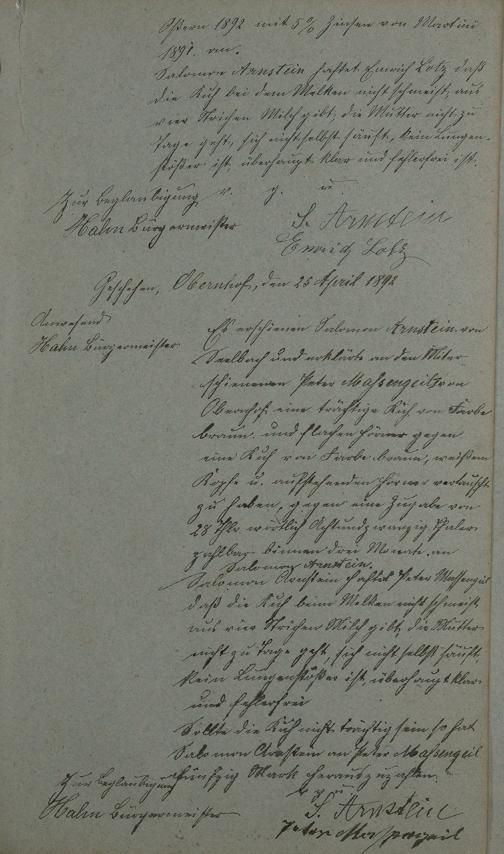 Ostern 1892 mit 5% Zinsen von Martini
1891 an.
Salomon Arnstein haftet Emrich Lotz daß
die Kuh bei dem Melken nicht schmeist, aus
vier Strichen Milch gibt, die Mutter nicht zu
Tage geht, sich nicht selbst säuft, kein Lungen-
stößer ist, überhaupt klar und fehlerfrei ist.
Zur Beglaubigung v. g. u.
Hahn Bürgermeister S. Arnstein
Emrich Lotz
Geschehen, Obernhof, den 25 April 1892
Anwesend
Hahn Bürgermeister
Es erschienen Salomon Arnstein von
Seelbach und erklärte an den Miter-
schienenen Peter Massengeil von
Obernhof eine trächtige Kuh von Farbe
braun und flachen Hörner gegen
eine Kuh von Farbe braun, weißem
Kopfe u. aufstehenden Hörner vertauscht
zu haben, gegen eine Zugabe von
28 Thlr wörtlich Achtundzwanzig Thaler
zahlbar binnen drei Monate an
Salomon Arnstein.
Salomon Arnstein haftet Peter Massengeil
daß die Kuh beim Melken nicht schmeist,
aus vier Strichen Milch gibt, die Mutter
nicht zu Tage geht, sich nicht selbst säuft,
kein Lungenstößer ist, überhaupt klar
und fehlerfrei
Sollte die Kuh nicht trächtig sein so hat
Salomon Arnstein an Peter Massengeil
fünfzig Mark herauszuzahlen.
Zur Beglaubigung v. g. u.
Hahn Bürgermeister S. Arnstein
Peter Massengeil